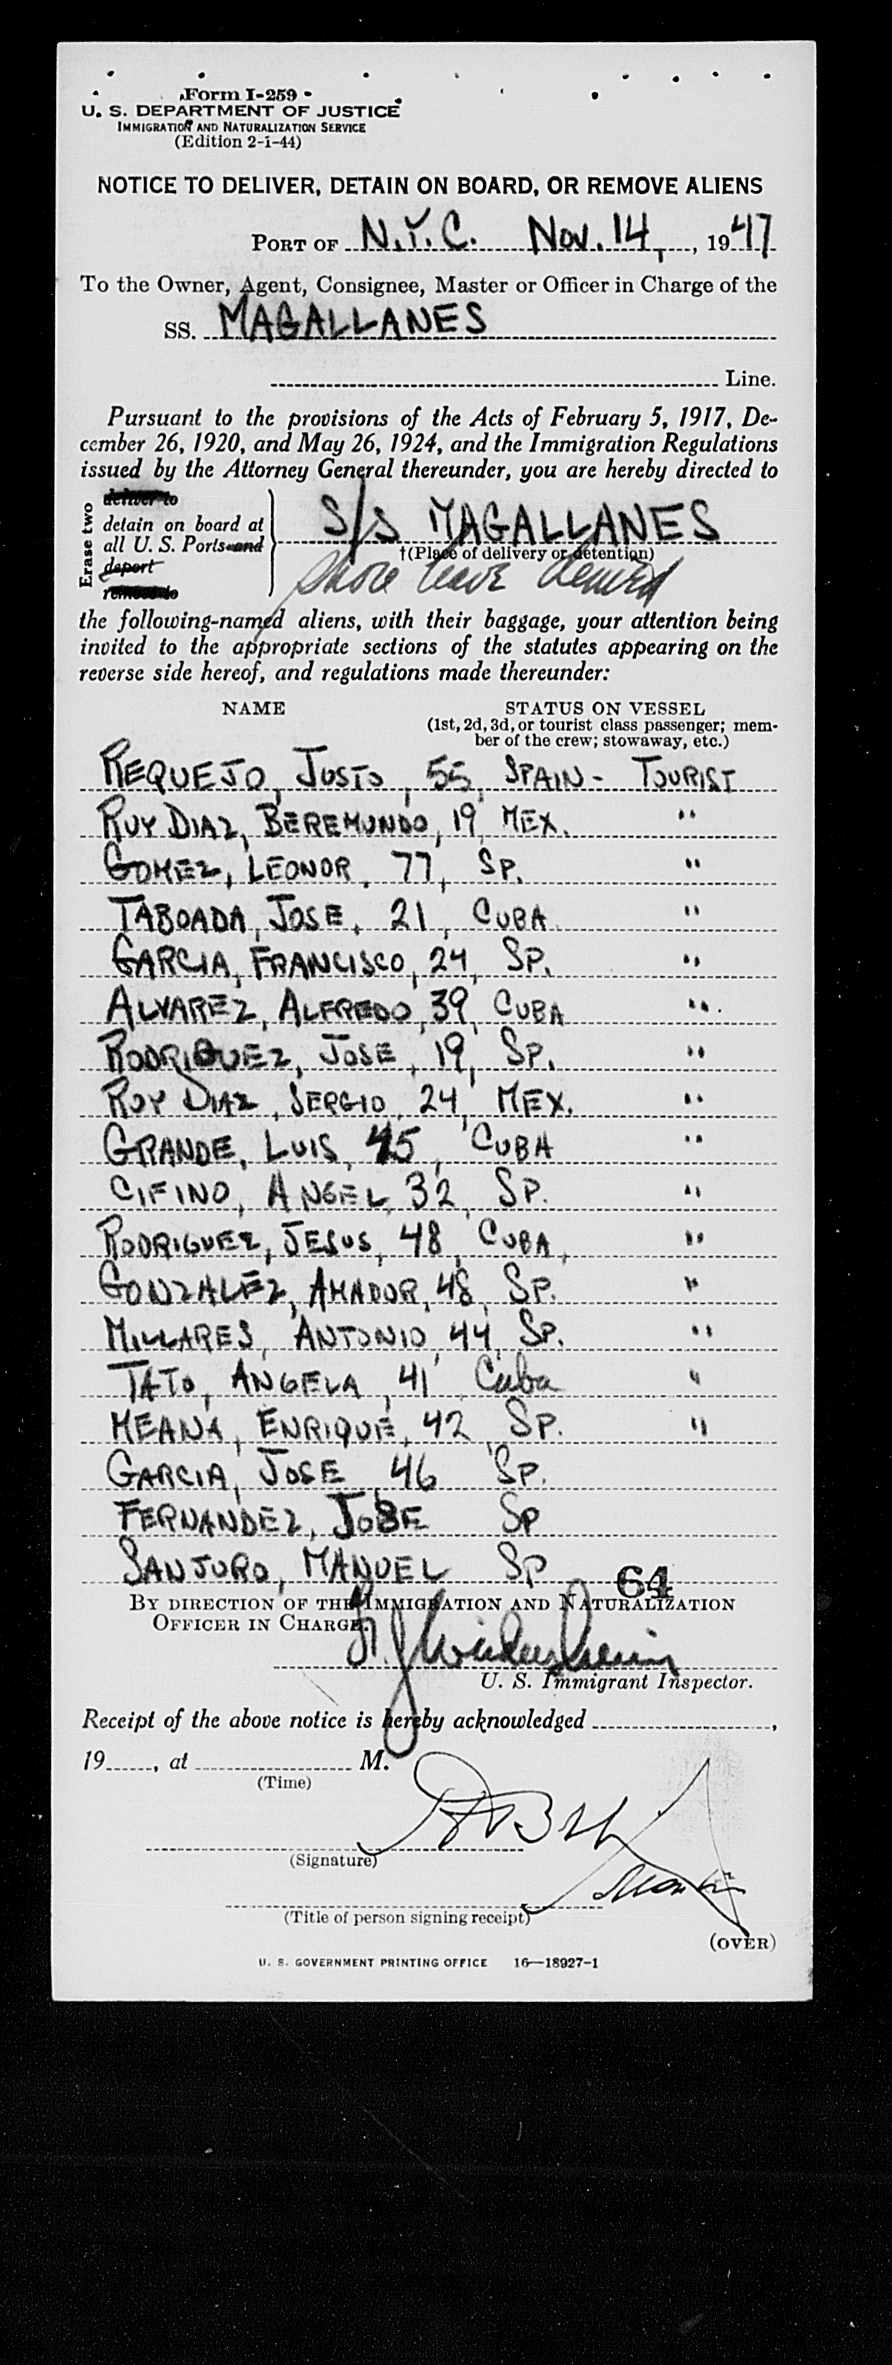 Form I-259
U. S. DEPARTMENT OF JUSTICE
IMMIGRATION AND NATURALIZATION SERVICE
(Edition 2-1-44)
NOTICE TO DELIVER, DETAIN ON BOARD, OR REMOVE ALIENS
PORT OF N.Y.C. Nov. 14, , 1947
To the Owner, Agent, Consignee, Master or Officer in Charge of the
SS. MAGALLANES
Line.
Pursuant to the provisions of the Acts of February 5, 1917, De-
cember 26, 1920, and May 26, 1924, and the Immigration Regulations
issued by the Attorney General thereunder, you are hereby directed to
Erase two
deliver to
detain on board at
all U. S. Ports and
deport
remove to
S/S MAGALLANES
†(Place of delivery or detention)
Shore leave denied
the following-named aliens, with their baggage, your attention being
invited to the appropriate sections of the statutes appearing on the
reverse side hereof, and regulations made thereunder:
NAME STATUS ON VESSEL
(1st, 2d, 3d, or tourist class passenger; mem-
ber of the crew; stowaway, etc.)
REQUEJO, JUSTO, 55, SPAIN - TOURIST
RUY DIAZ, BEREMUNDO, 19, MEX. "
GOMEZ, LEONOR, 77, SP. "
TABOADA, JOSE, 21, CUBA. "
GARCIA, FRANCISCO, 24, SP. "
ALVAREZ, ALFREDO, 39, CUBA "
RODRIGUEZ, JOSE, 19, SP. "
RUY DIAZ, SERGIO, 24, MEX. "
GRANDE, LUIS, 45, CUBA "
CIFINO, ANGEL, 32, SP. "
RODRIGUEZ, JESUS, 48, CUBA, "
GONZALEZ, AMADOR, 48, SP. "
MILLARES, ANTONIO, 44, SP. "
TATO, ANGELA, 41, Cuba "
MEANA, ENRIQUE, 42, SP. "
GARCIA, JOSE 46 SP.
FERNANDEZ, JOSE SP
SANJURO, MANUEL SP
64
BY DIRECTION OF THE IMMIGRATION AND NATURALIZATION
OFFICER IN CHARGE.
U. S. Immigrant Inspector.
Receipt of the above notice is hereby acknowledged ,
19 , at M.
(Time)
(Signature)
(Title of person signing receipt)
(OVER)
U. S. GOVERNMENT PRINTING OFFICE 16—18927-1